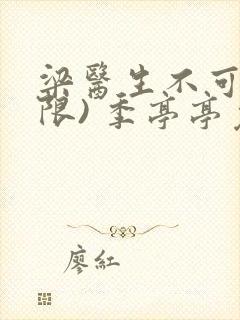 梁醫生不可
限) 季亭亭
廖紅